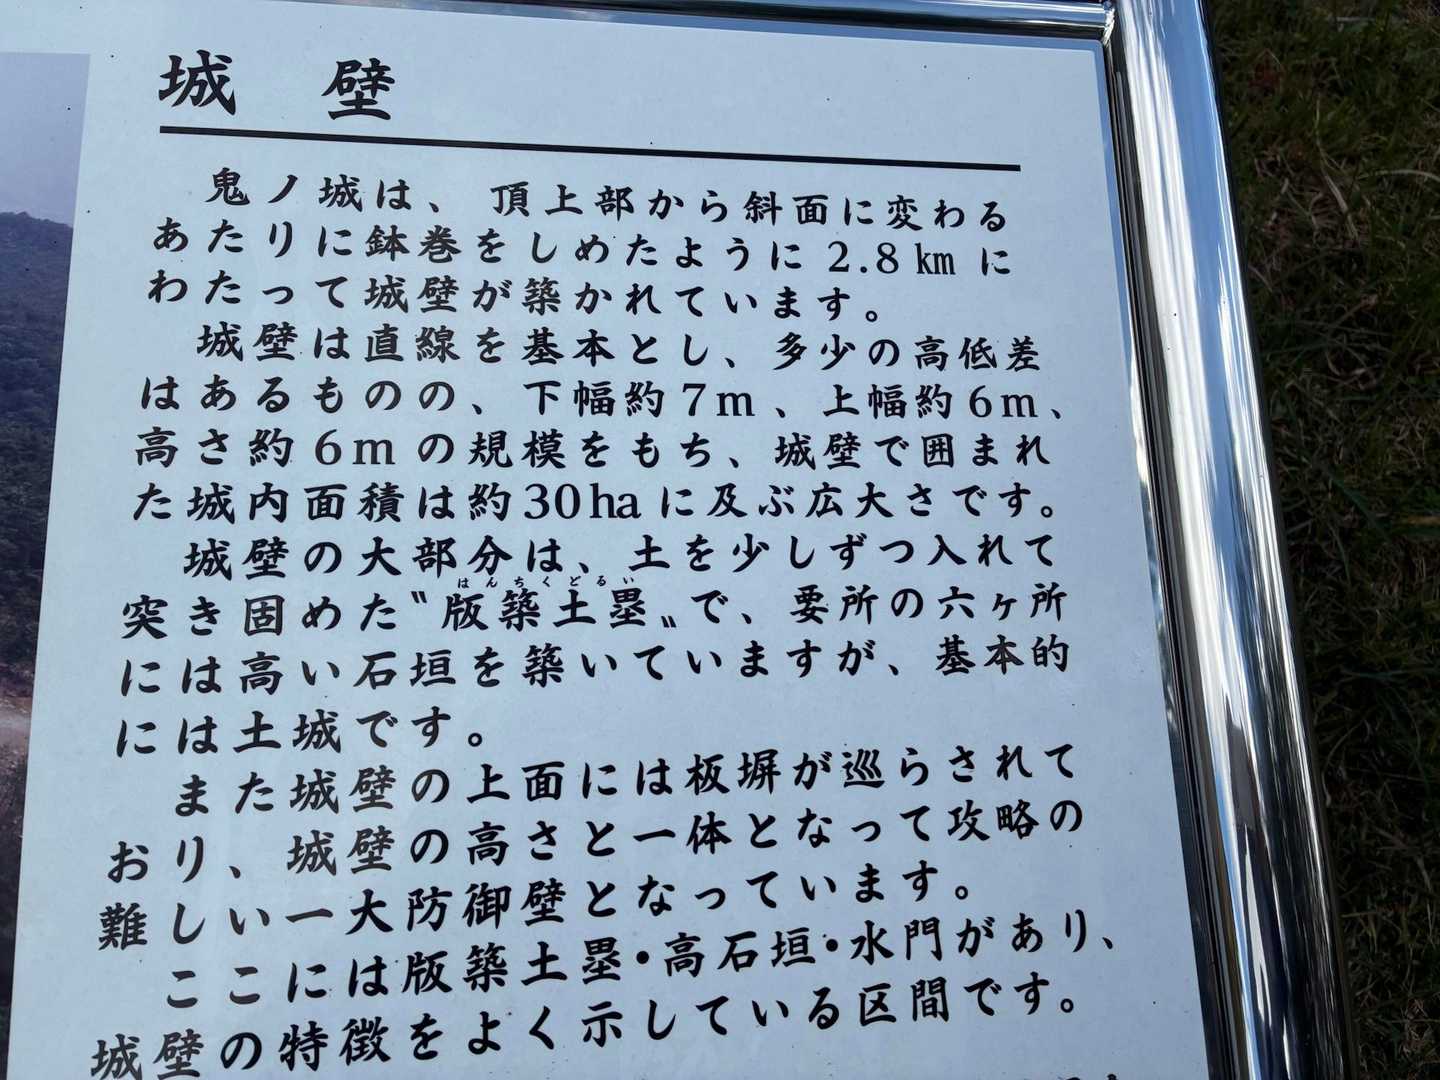 城壁
鬼ノ城は、頂上部から斜面に変わる
あたりに鉢巻をしめたように2.8㎞に
わたって城壁が築かれています。
城壁は直線を基本とし、多少の高低差
はあるものの、下幅約7m、上幅約6m、
高さ約6mの規模をもち、城壁で囲まれ
た城内面積は約30haに及ぶ広大さです。
城壁の大部分は、土を少しずつ入れて
はんちくどるい
突き固めた〝版築土塁〟で、要所の六ヶ所
には高い石垣を築いていますが、基本的
には土城です。
また城壁の上面には板塀が巡らされて
おり、城壁の高さと一体となって攻略の
難しい一大防御壁となっています。
ここには版築土塁・高石垣・水門があり、
城壁の特徴をよく示している区間です。